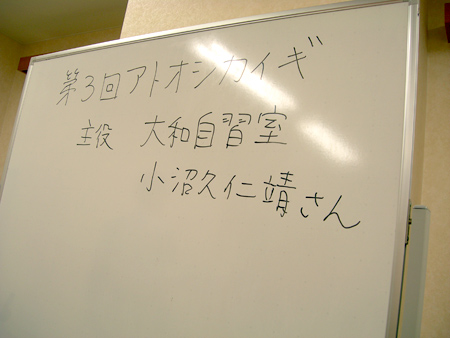 第3回アトオシカイギ
主役 大和自習室
小沼久仁靖さん